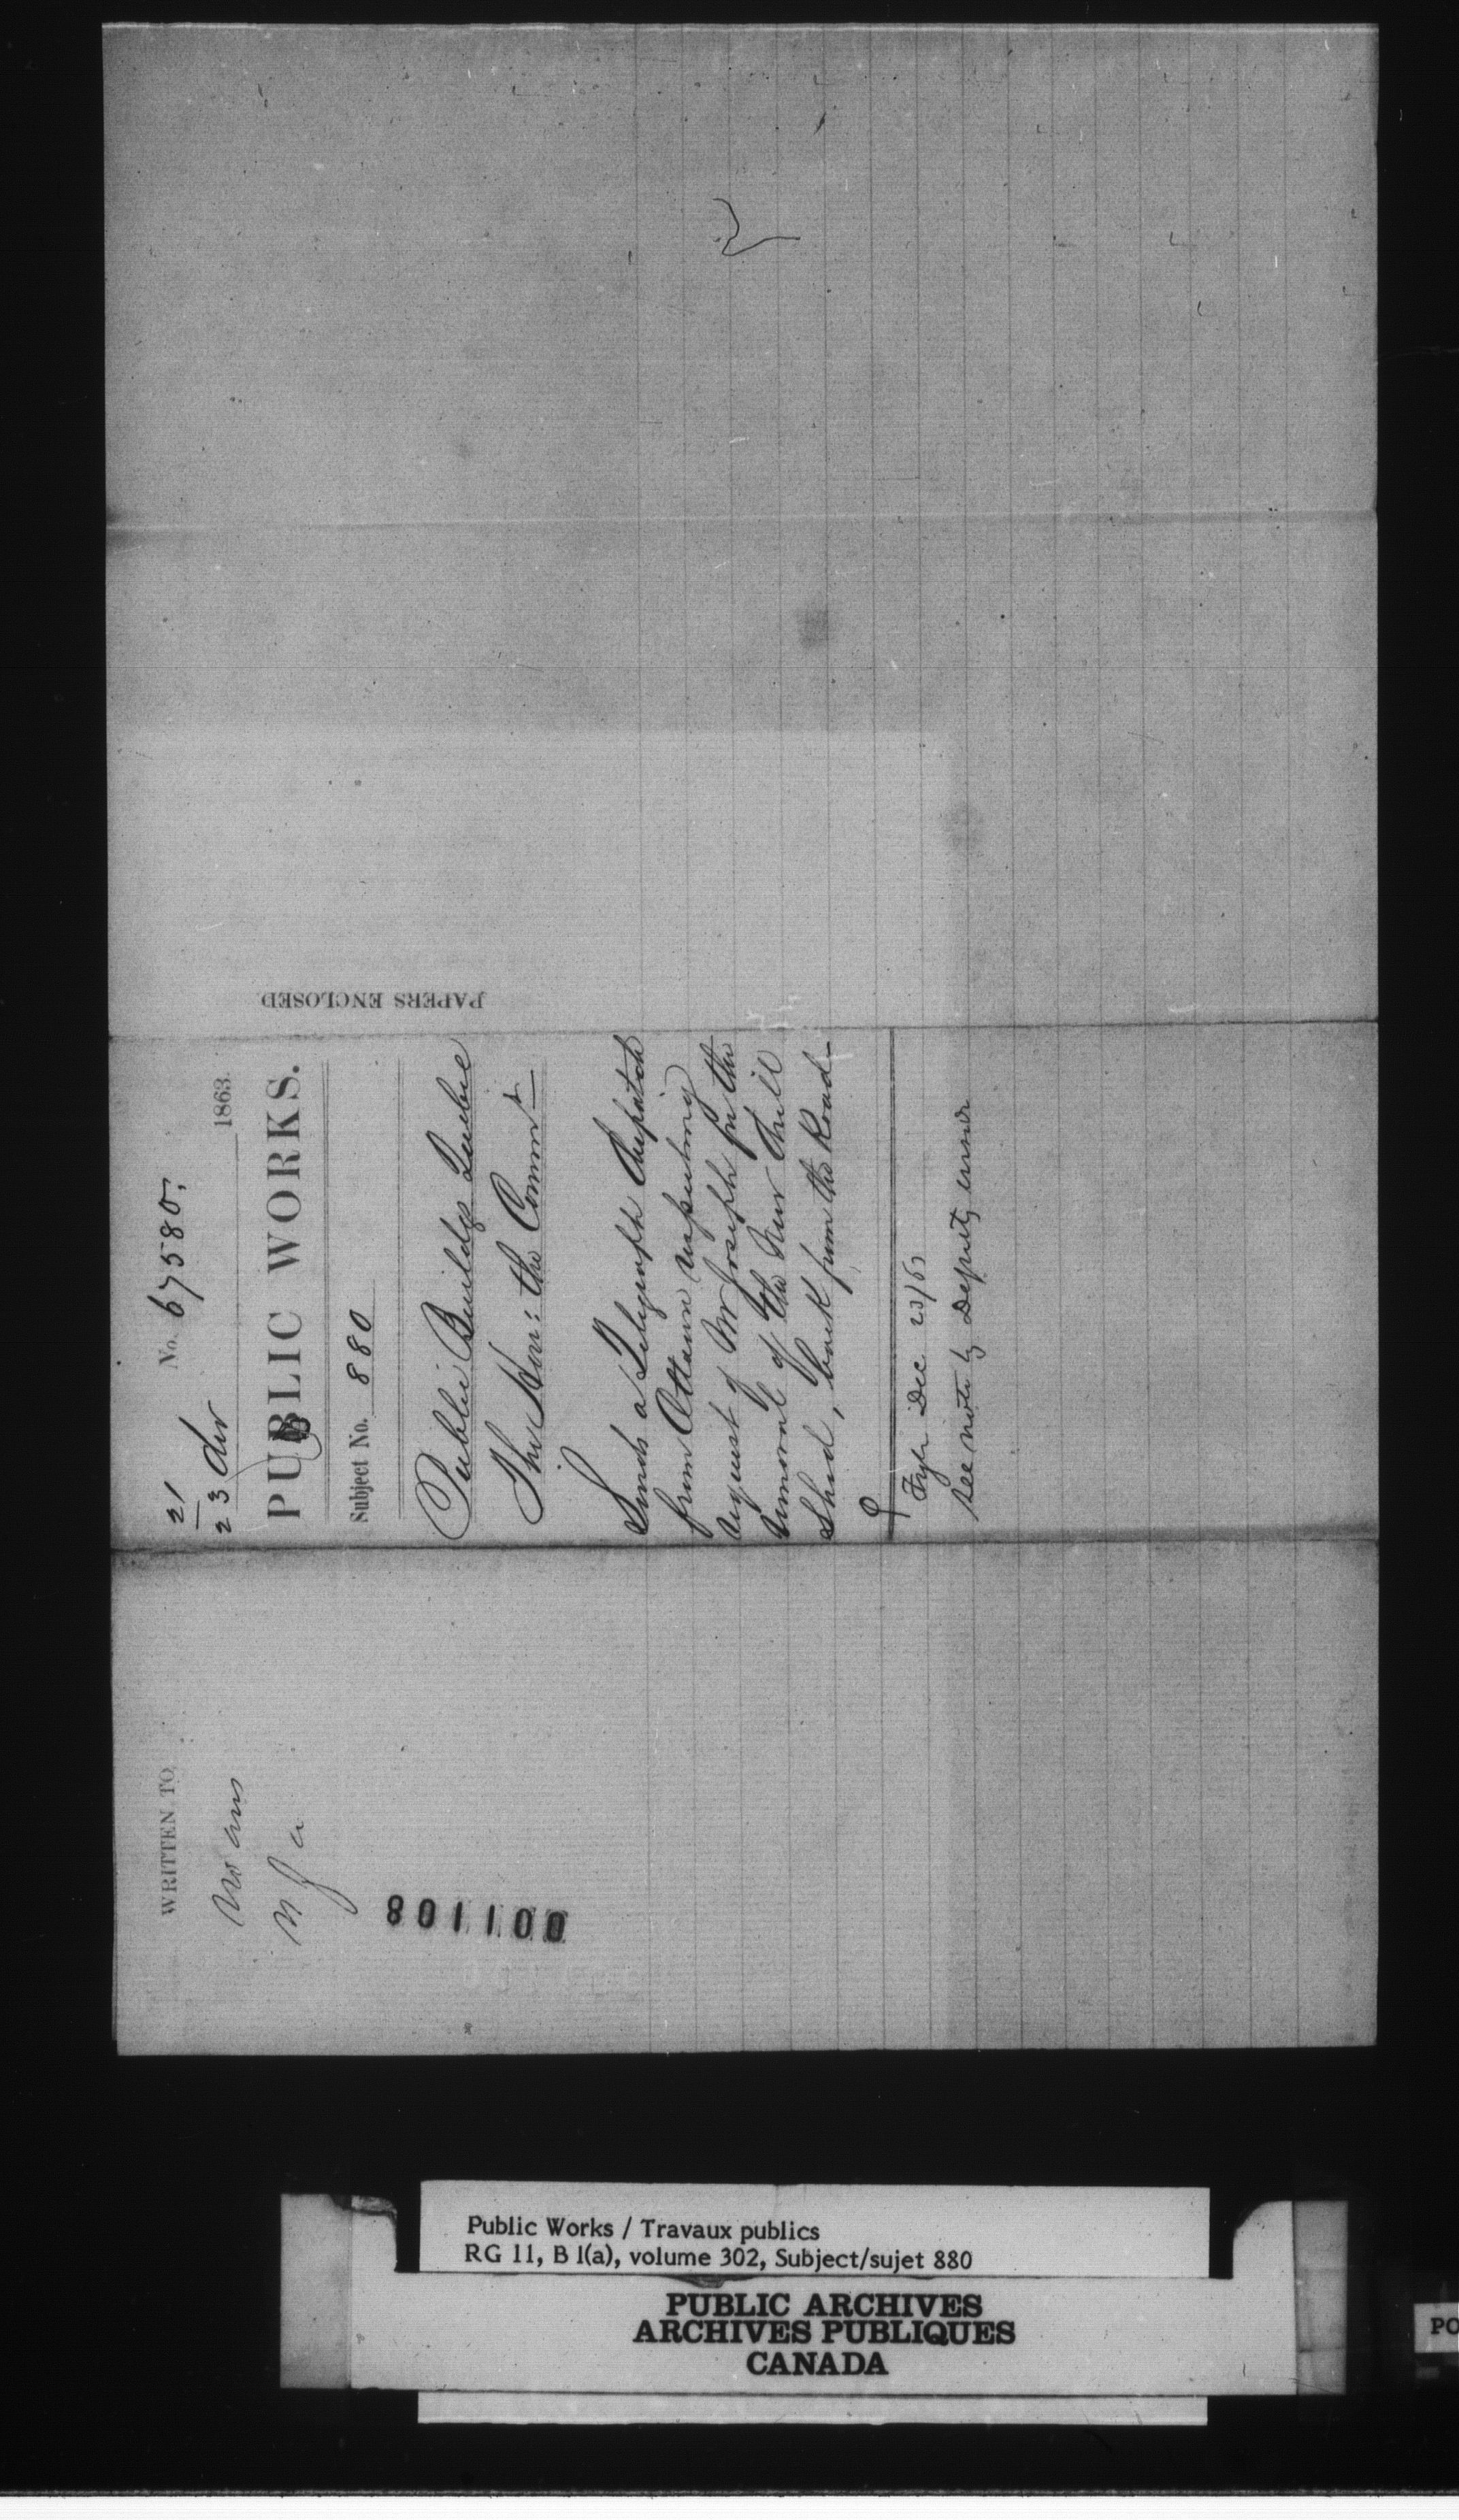 21
23 Dec No. 67580, 1863.
PUBLIC WORKS.
Subject No. 880
Public Buildgs Quebec
The Hon: the Commr
Sends a Telegraph despatch
from Ottawa respecting
request of Mr Joseph for the
removal of the New Drill
Shed, back from the Road.
Fyle Dec. 23/63
See note by Deputy
PAPERS ENCLOSED
WRITTEN TO
001108
Public Works / Travaux publics
RG 11, B 1(a), volume 302, Subject/sujet 880
PUBLIC ARCHIVES
ARCHIVES PUBLIQUES
CANADA
PO